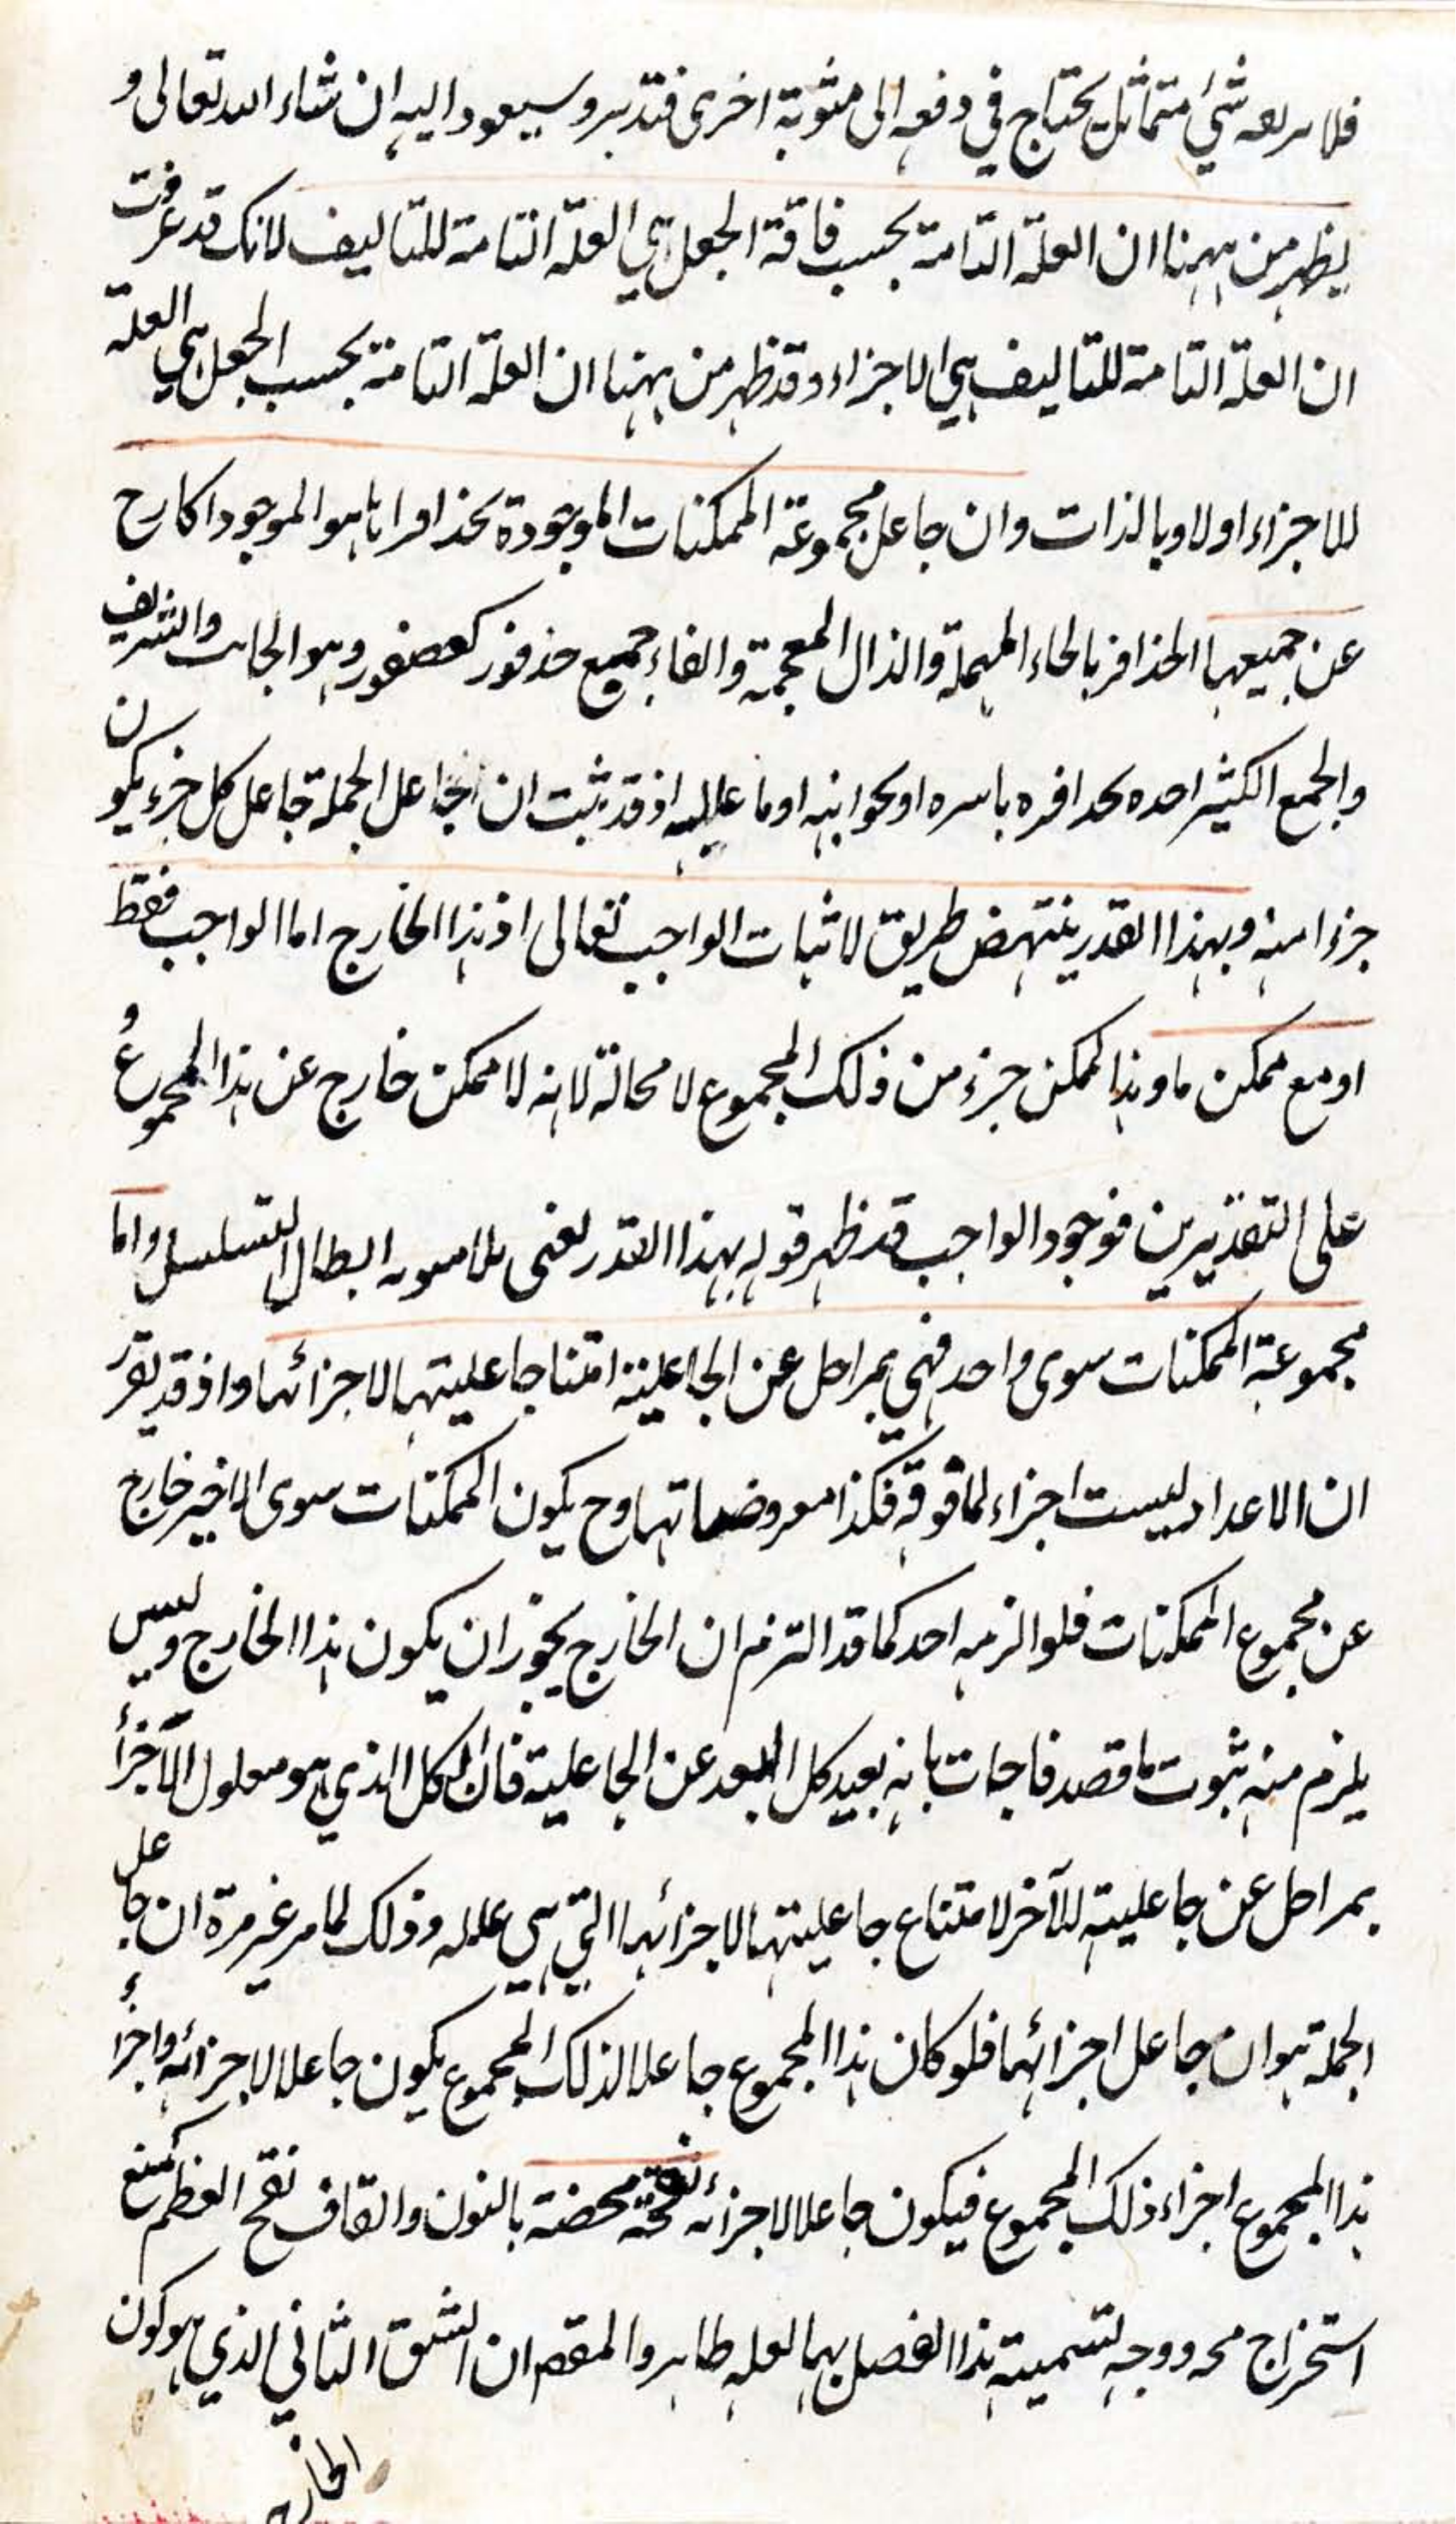 فلا شئ متماثل يحتاج في دفعه الى مثوبة اخرى فتدبر وسيعود اليه ان شاء الله تعالى و
يظهر من ههنا ان العلة التامة بحسب فاقة الجعل هي العلة التامة للتاليف لانك قد عرفت
ان العلة التامة للتاليف هي الاجزاء وقد ظهر من ههنا ان العلة التامة بحسب الجعل هي العلة
للاجزاء اولا وبالذات وان جاعل مجموعة الممكنات الموجودة بحذافيرها هو الموجود الخارج
عن جميعها الحذافر بالحاء المهملة والذال المعجمة والفاء جميع حذفور كعصفور وهو الجانب والشريف
والجمع الكثير احده بحذافره باسره او بجوانبه او ما عليه اذ قد ثبت ان جاعل الجملة جاعل كل جزء يكون
جزءا منه وبهذا القدر ينتهض طريق لاثبات الواجب تعالى اذ هذا الخارج اما الواجب فقط
او مع ممكن ما وهذا الممكن جزء من ذلك المجموع لا محالة لانه لا ممكن خارج عن هذا المجموع و
على التقديرين فوجود الواجب قد ظهر قوله بهذا القدر يعني ابطال التسلسل واما
مجموعة الممكنات سوى واحد فهي بمراحل عن الجاعلية امتنا جاعليتها لاجزائها واذ قد تقرر
ان الاعداد ليست اجزاء لما فوقه فكذا معروضاتها وح يكون الممكنات سوى الاخير خارج
عن مجموع الممكنات فلو الزمه احد كما قد التزم ان الخارج يجوز ان يكون هذا الخارج وليس
يلزم منه ثبوت ما قصد فاجاب بانه بعيد كل البعد عن الجاعلية فان الكل الذي هو معلول الاجزأ
بمراحل عن جاعليته للآخر لامتناع جاعليتها لاجزائها التي هي علله وذلك لما مر غير مرة ان جاعل
الجملة هو ان جاعل اجزائها فلو كان هذا المجموع جاعلا لذلك المجموع يكون جاعلا لاجزائه واجزأ
هذا المجموع اجزاء ذلك المجموع فيكون جاعلا لاجزائه نقحة محضة بالنون والقاف نقح العظم كمنع
استخراج مخه ووجه تسمية هذا الفصل بهما لعله ظاهر والمقصم ان الشق الثاني الذي هو كون
الخارج